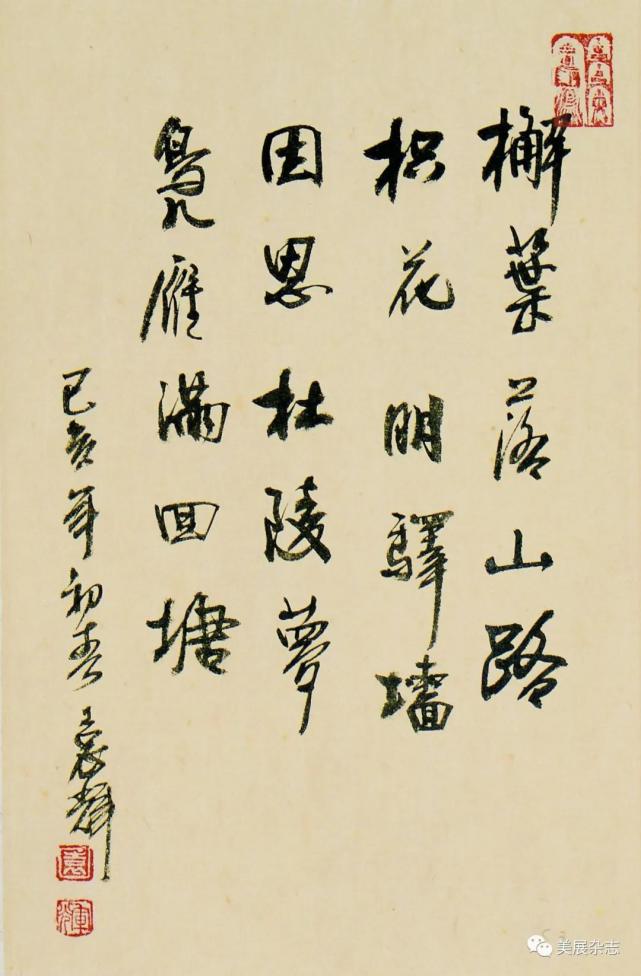 檞葉落山路
枳花明驛墻
因思杜陵夢
鳧雁滿回塘
己亥年初春 袁輝
袁
輝
美展杂志